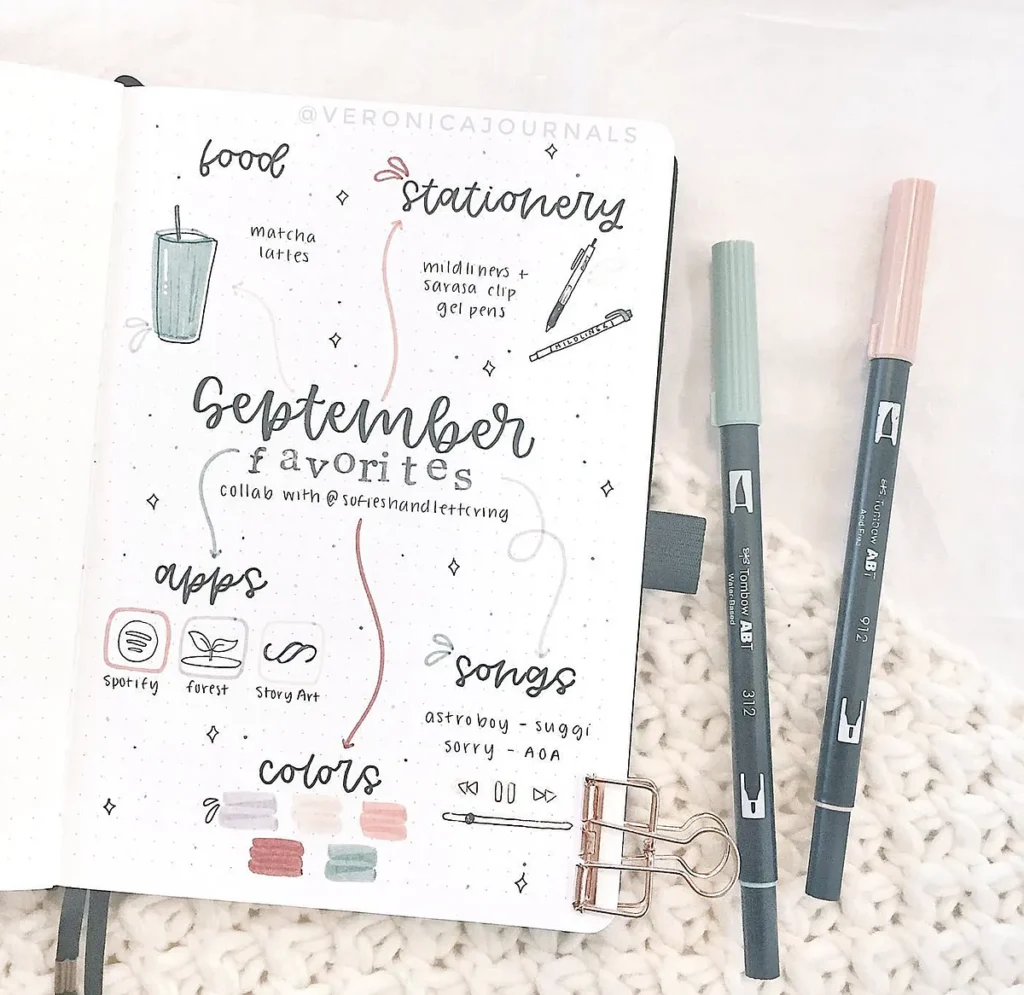 @VERONICAJOURNALS
food
matcha
lattes
stationery
mildliners +
sarasa clip
gel pens
MILDLINER
September
favorites
collab with @sofieshandlettering
apps
Spotify
forest
Story Art
songs
astroboy - suggi
sorry - AOA
colors
Tombow ABT
Water-Based
312
Tombow ABT
Acid Free
912